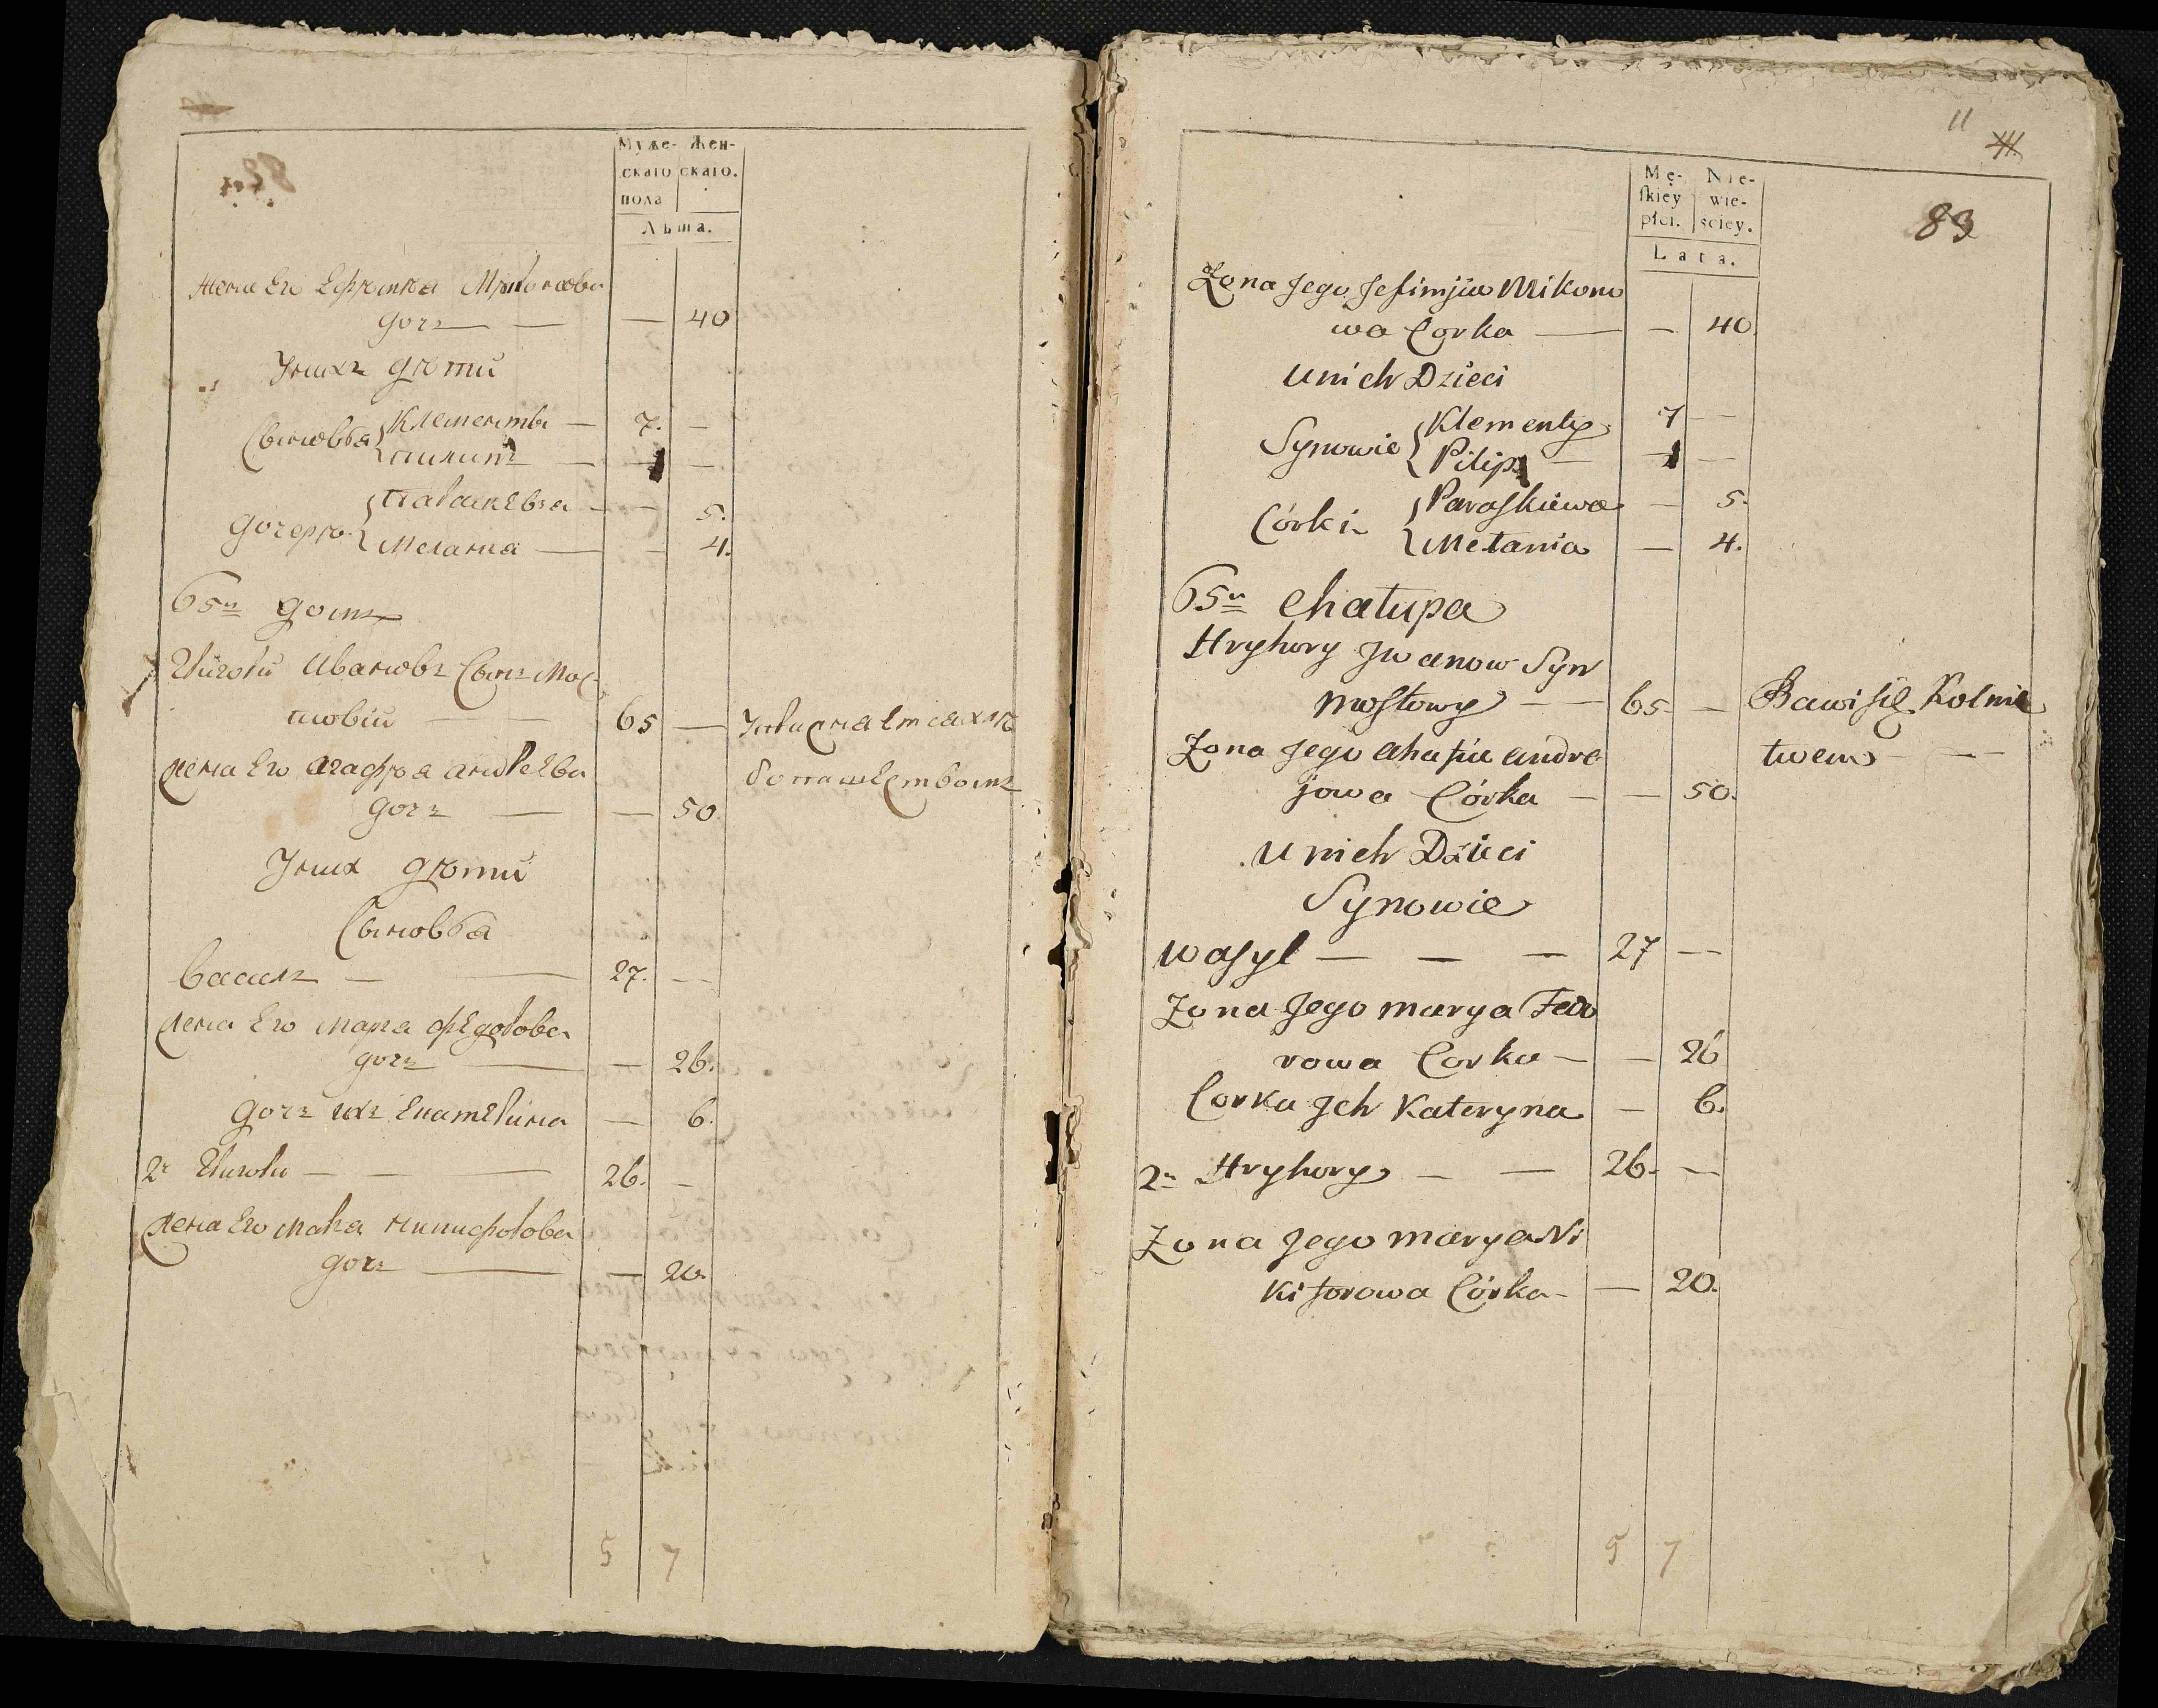 Муже- Жен-
скаго скаго.
пола
Лѣта.
жена Его Ефимка
дочь — — 40
Унихъ дѣти
Сыновья Клементы — 7. —
Пилипъ — 1 —
дочери Параскевья — — 5.
Мелания — — 4.
65й домъ
Григори Ивановъ Сынъ Мос-
товий — — 65 —
жена Его Агафия Андреева
дочь — — 50
Уних дѣти
Сыновья
Василь — — 27. —
жена Его Мария Федорова
дочь — — 26.
дочь ихъ Екатерина — 6.
2й Григори — — 26. —
жена Его Мария Никифорова
дочь — — 20.
5 7
11
83
Mę- Nie-
skiey wie-
płci. sciey.
Lata.
Zona Jego Jefimija Mikono
wa Corka — — 40.
U nich Dzieci
Synowie Klementy 7 —
Pilip — 1 —
Córki Paraskiewa — 5.
Metania — 4.
65a Chatupa
Hryhory Jwanow Syn
Mostowy — — 65. — Bawi się Rolnic
Zona Jego Ahafia Andre twem — —
jowa Córka — — 50.
U nich Dzieci
Synowie
Wasyl — — — 27 —
Zona Jego Marya Fedo
rowa Corka — — 26
Corka Jch Kateryna — 6.
2й Hryhory — — 26. —
Zona Jego Marya Ni
kiforowa Córka — — 20.
5 7